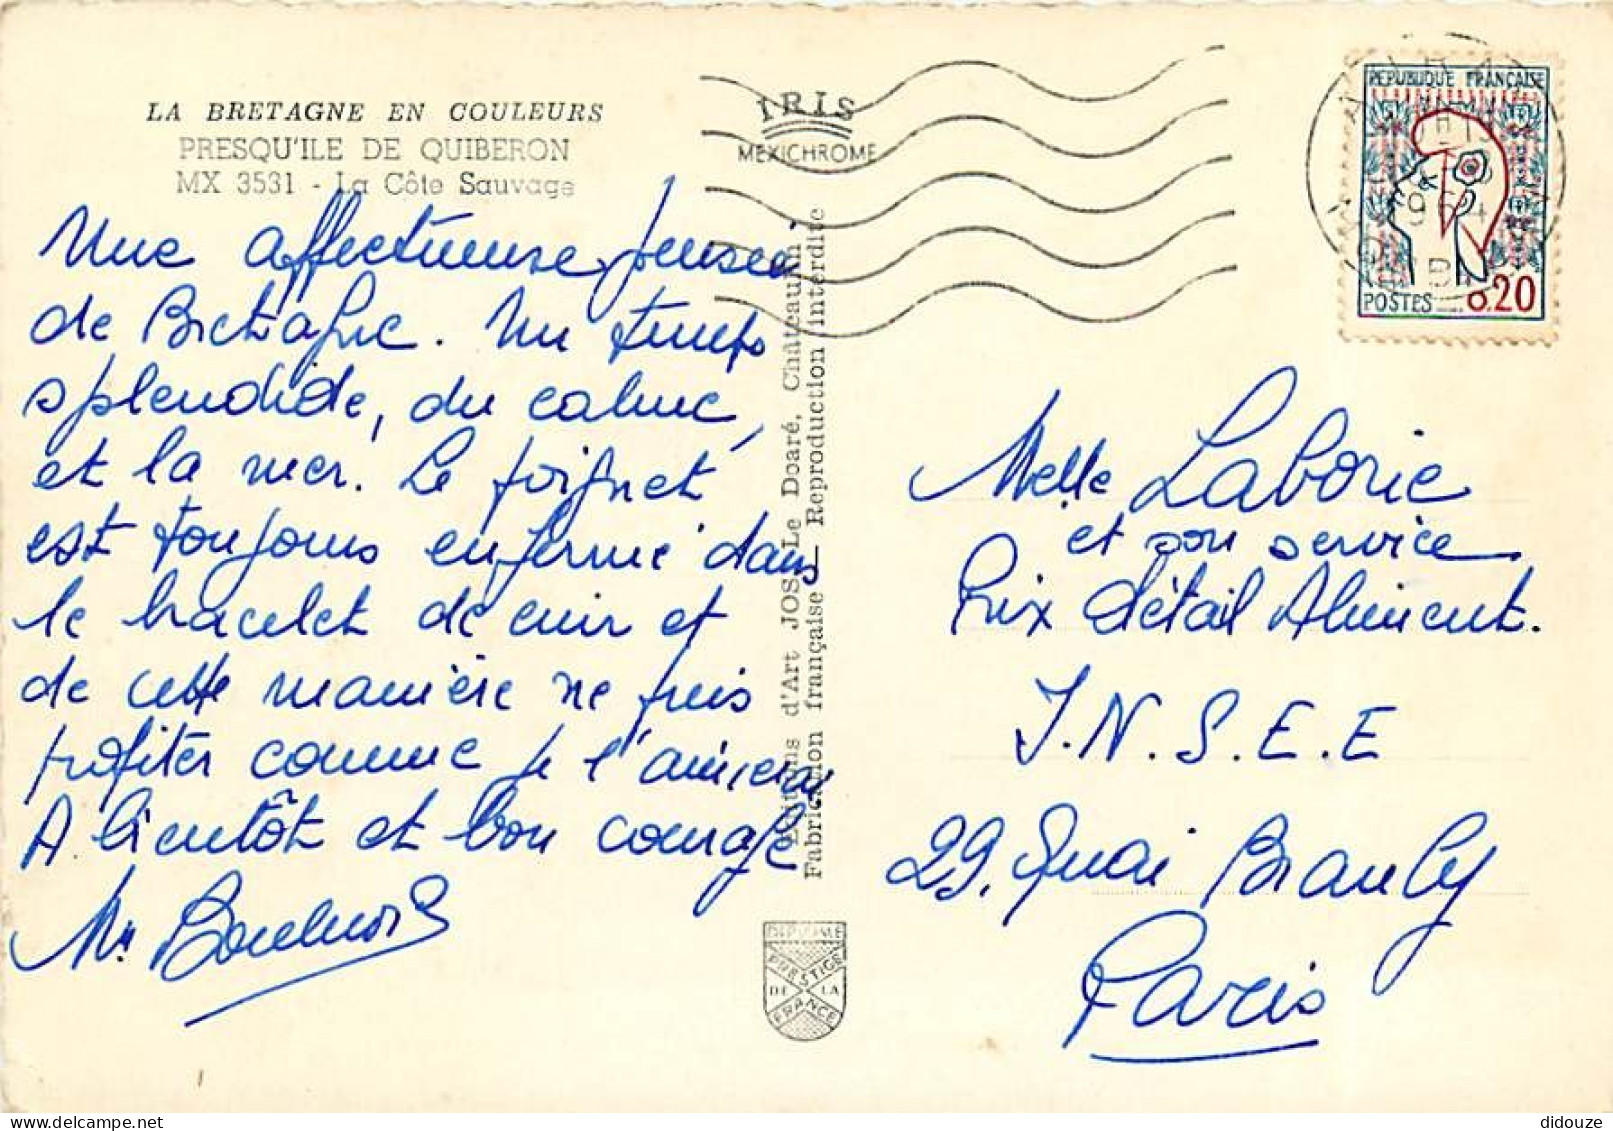 LA BRETAGNE EN COULEURS
PRESQU'ILE DE QUIBERON
MX 3531 - La Côte Sauvage
IRIS
MEXICHROME
Une affectueuse pensée
de Bretagne. Un temps
splendide, du calme,
et la mer. Le poignet
est toujours enfermé dans
le bracelet de cuir et
de cette manière ne puis
profiter comme je l'aimerai
A bientôt et bon courage
Editions d'Art JOS Le Doaré, Châteaulin
Fabrication française Reproduction interdite
DIPLOME
PRESTIGE
DE LA
FRANCE
REPUBLIQUE FRANÇAISE
1964
POSTES 0.20
Melle Laborie
et son service
Prix détail Aliment.
I.N.S.E.E
29, Quai Branly
Paris
didouze